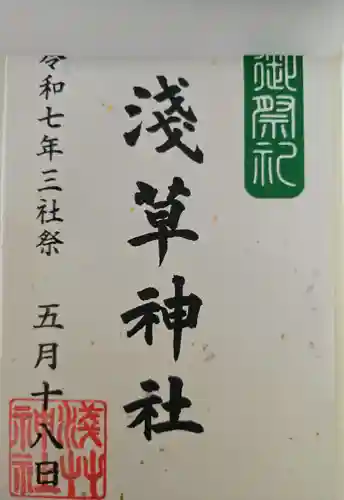 御祭礼
淺草神社
令和七年三社祭 五月十八日
淺草神社